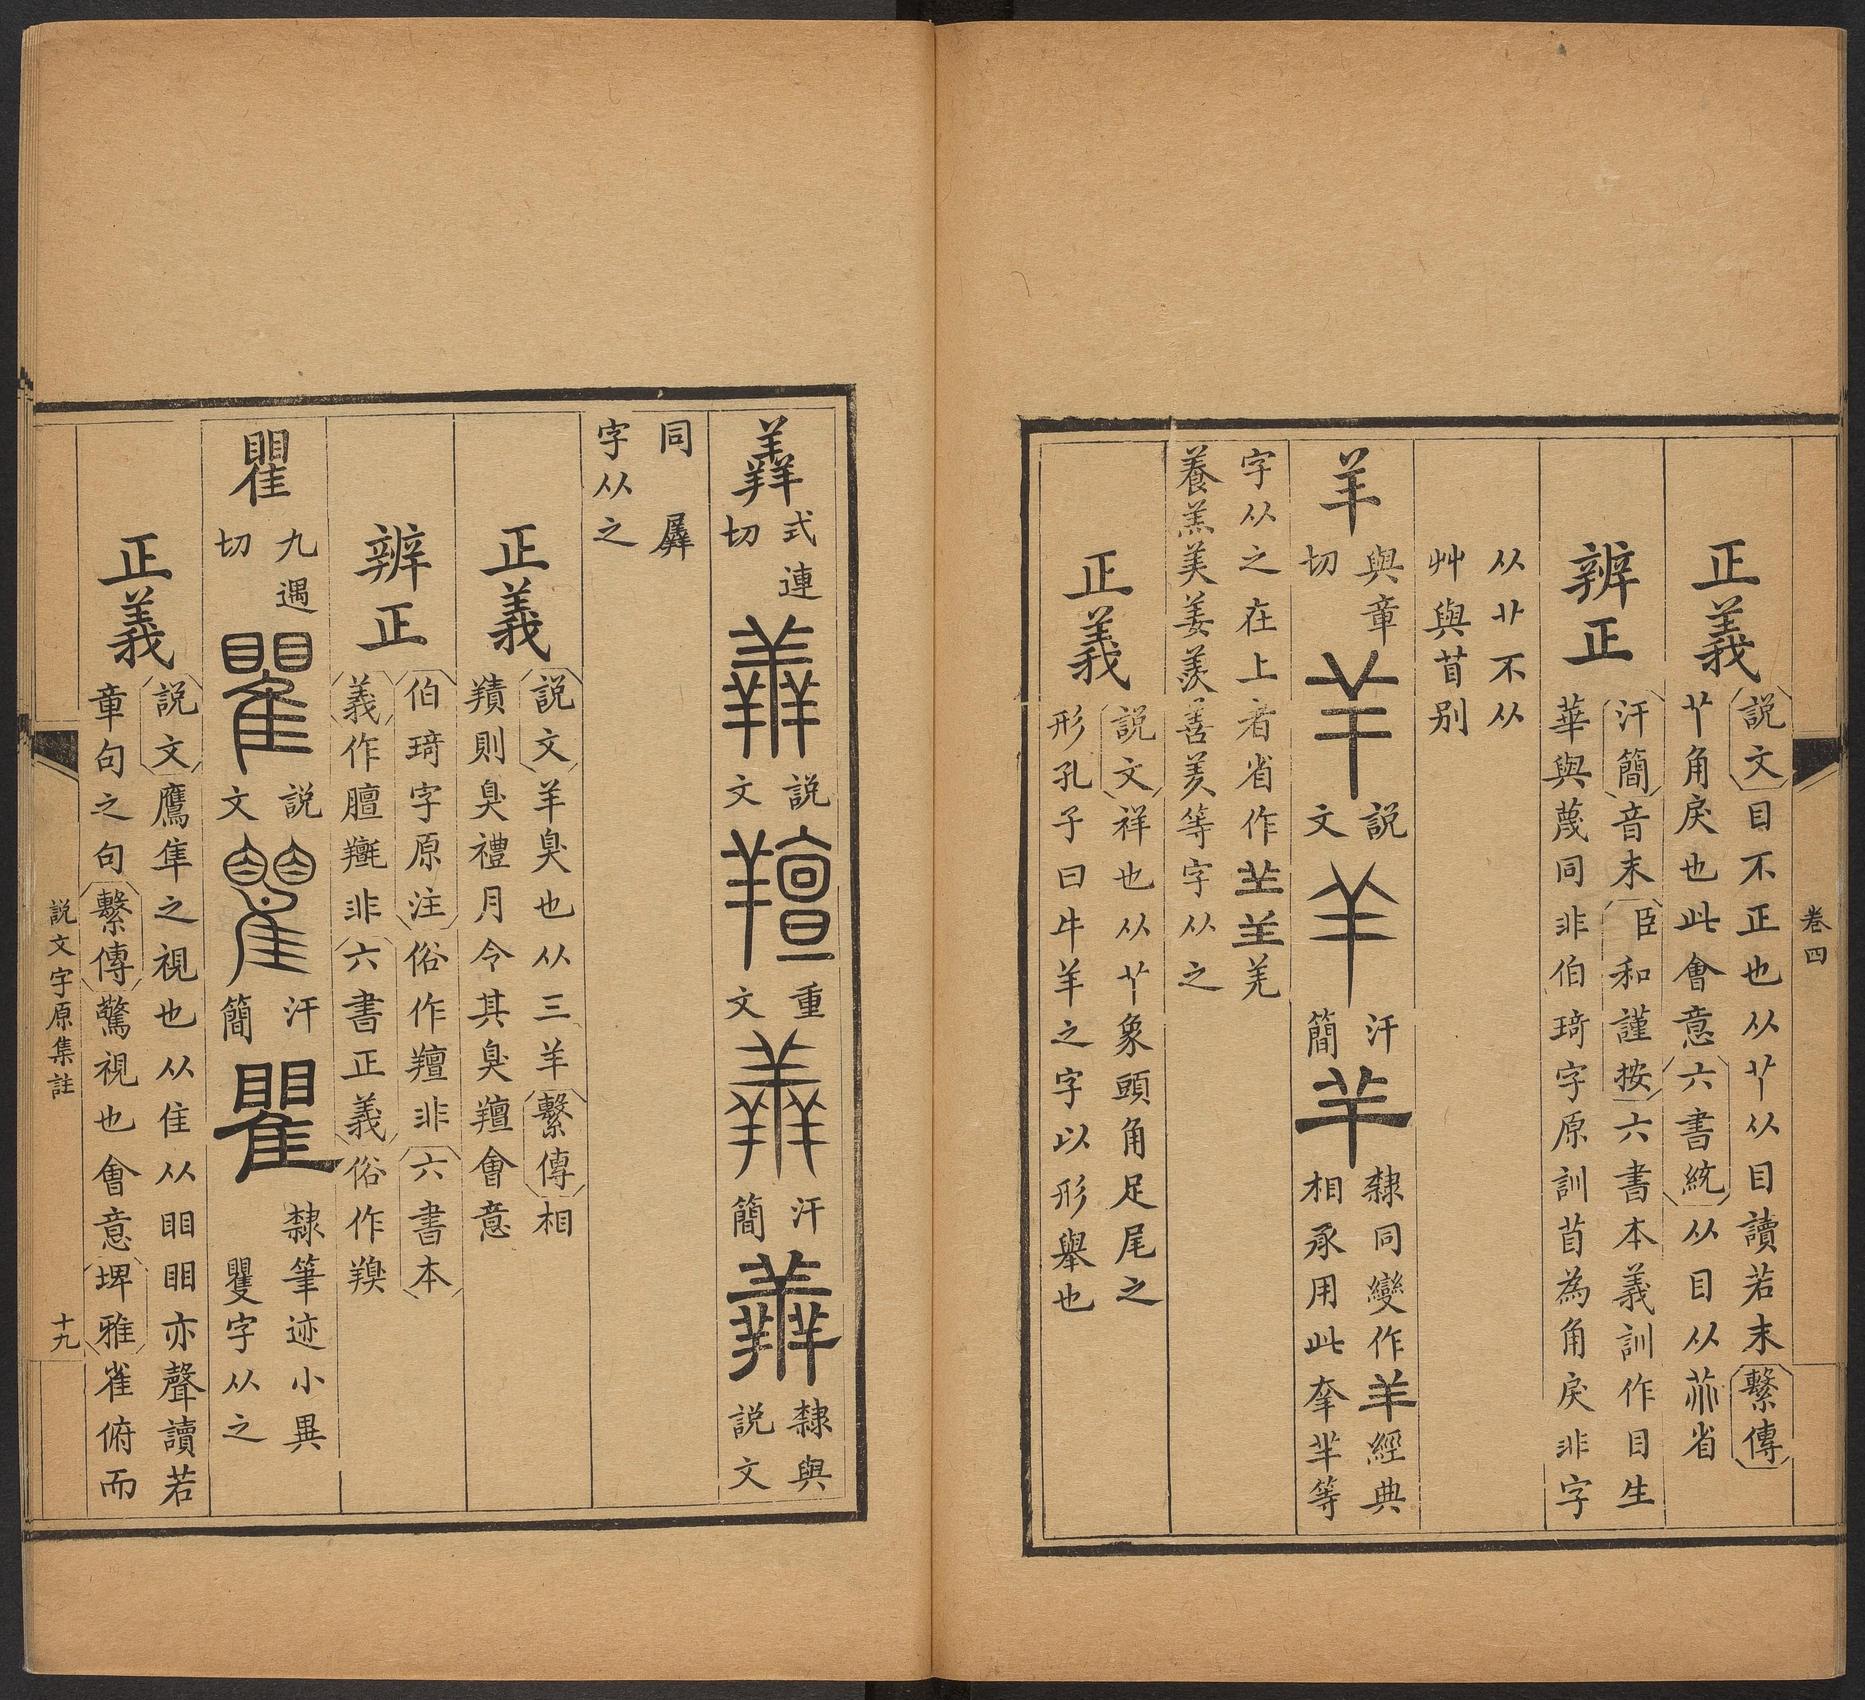 卷四
正義
說文目不正也从𦫳从目讀若末繫傳
𦫳角戾也此會意六書統从目从𦬅省
辨正
汗簡音末臣和謹按六書本義訓作目生
華與蔑同非伯琦字原訓苜為角戾非字
从𦫳不从
艸與苜别
羊
與章
切
說
文
汗
簡
隸同變作羊經典
相承用此羍羋等
字从之在上者省作𦍌𦍋羌
養羔美姜羨善羑等字从之
正義
說文祥也从𦫳象頭角足尾之
形孔子曰牛羊之字以形舉也
羴
式連
切
羴
說
文
羶
重
文
羴
汗
簡
羴
隸與
說文
同 羼
字从之
正義
說文羊臭也从三羊繫傳相
羵則臭禮月令其臭羶會意
辨正
伯琦字原注俗作羶非六書本
義作膻氈非六書正義俗作羠
瞿
九遇
切
瞿
說
文
汗
簡
瞿
隸筆迹小異
矍字从之
正義
說文鷹隼之視也从隹从䀠䀠亦聲讀若
章句之句繫傳驚視也會意埤雅雀俯而
說文字原集註
十九